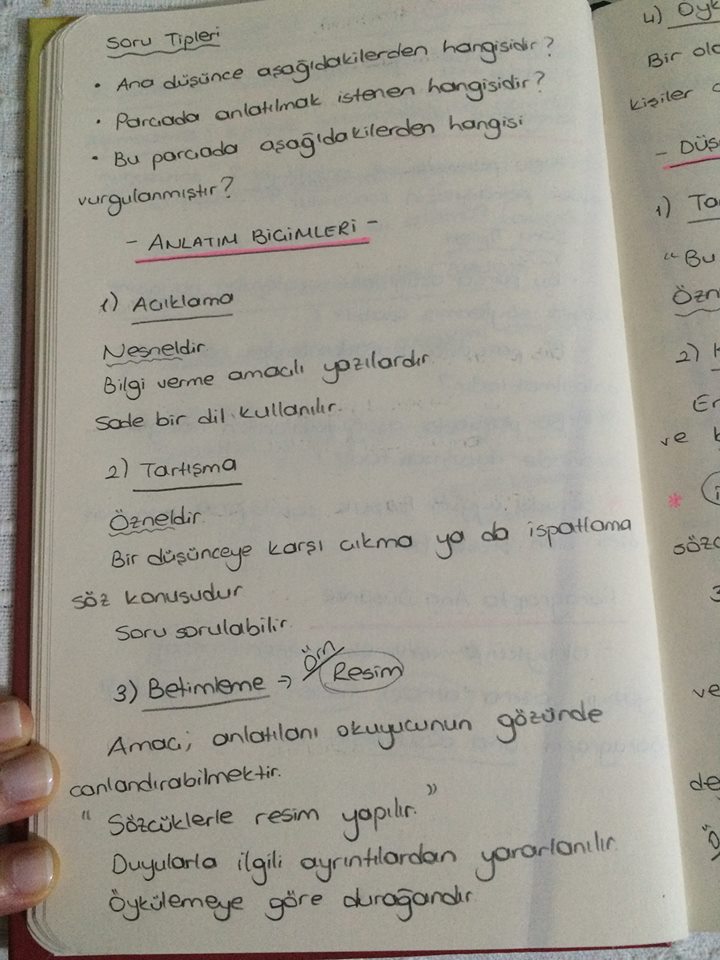 Soru Tipleri
• Ana düşünce aşağıdakilerden hangisidir?
• Parçada anlatılmak istenen hangisidir?
• Bu parçada aşağıdakilerden hangisi
vurgulanmıştır?
- ANLATIM BİÇİMLERİ -
1) Açıklama
Nesneldir
Bilgi verme amaçlı yazılardır
Sade bir dil kullanılır.
2) Tartışma
Özneldir
Bir düşünceye karşı çıkma ya da ispatlama
söz konusudur
Soru sorulabilir.
3) Betimleme → Örn/ Resim
Amaç; anlatılanı okuyucunun gözünde
canlandırabilmektir.
" Sözcüklerle resim yapılır. "
Duyularla ilgili ayrıntılardan yararlanılır
Öykülemeye göre durağandır
4)
Bir
kişiler
1)
"Bu
2)
ve
*
3
ve